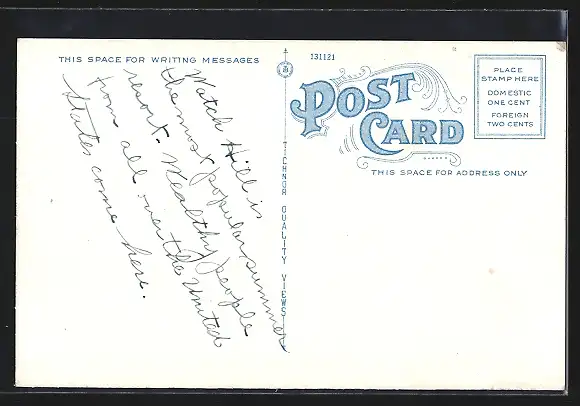 THIS SPACE FOR WRITING MESSAGES
Watch Hill is
the most popular summer
resort. Wealthy people
from all over the United
States come here.
TICHNOR QUALITY VIEWS
131121
POST
CARD
THIS SPACE FOR ADDRESS ONLY
PLACE
STAMP HERE
DOMESTIC
ONE CENT
FOREIGN
TWO CENTS